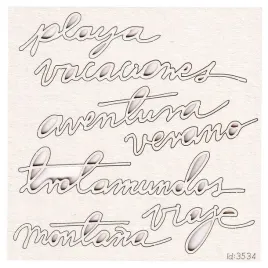 playa
vacaciones
aventura
verano
trotamundos
viaje
montaña
Id:3534